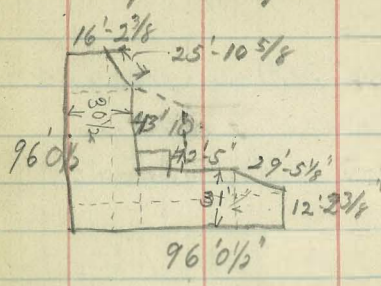 16'-2 3/8
25'-10 5/8
30 1/2
43'
96' 0 1/2
42'-5"
29'-5 1/8"
31'
12'-2 3/8"
96' 0 1/2"